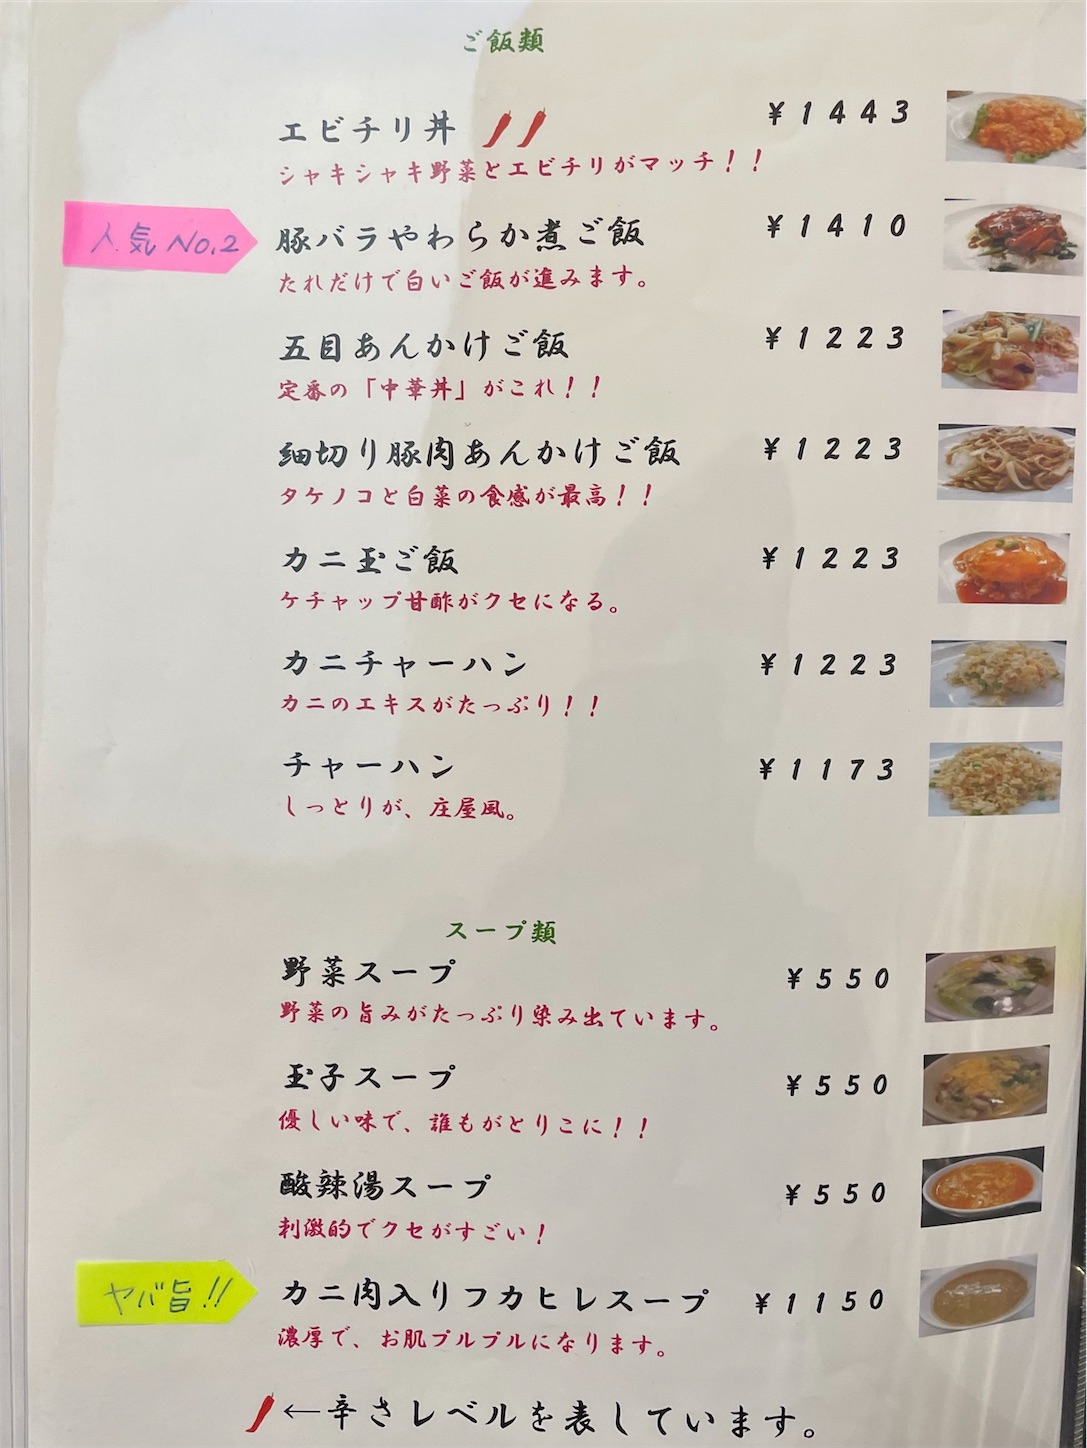 ご飯類
エビチリ丼 ¥1443
シャキシャキ野菜とエビチリがマッチ！！
人気No.2 豚バラやわらか煮ご飯 ¥1410
たれだけで白いご飯が進みます。
五目あんかけご飯 ¥1223
定番の「中華丼」がこれ！！
細切り豚肉あんかけご飯 ¥1223
タケノコと白菜の食感が最高！！
カニ玉ご飯 ¥1223
ケチャップ甘酢がクセになる。
カニチャーハン ¥1223
カニのエキスがたっぷり！！
チャーハン ¥1173
しっとりが、庄屋風。
スープ類
野菜スープ ¥550
野菜の旨みがたっぷり染み出ています。
玉子スープ ¥550
優しい味で、誰もがとりこに！！
酸辣湯スープ ¥550
刺激的でクセがすごい！
ヤバ旨!! カニ肉入りフカヒレスープ ¥1150
濃厚で、お肌プルプルになります。
←辛さレベルを表しています。